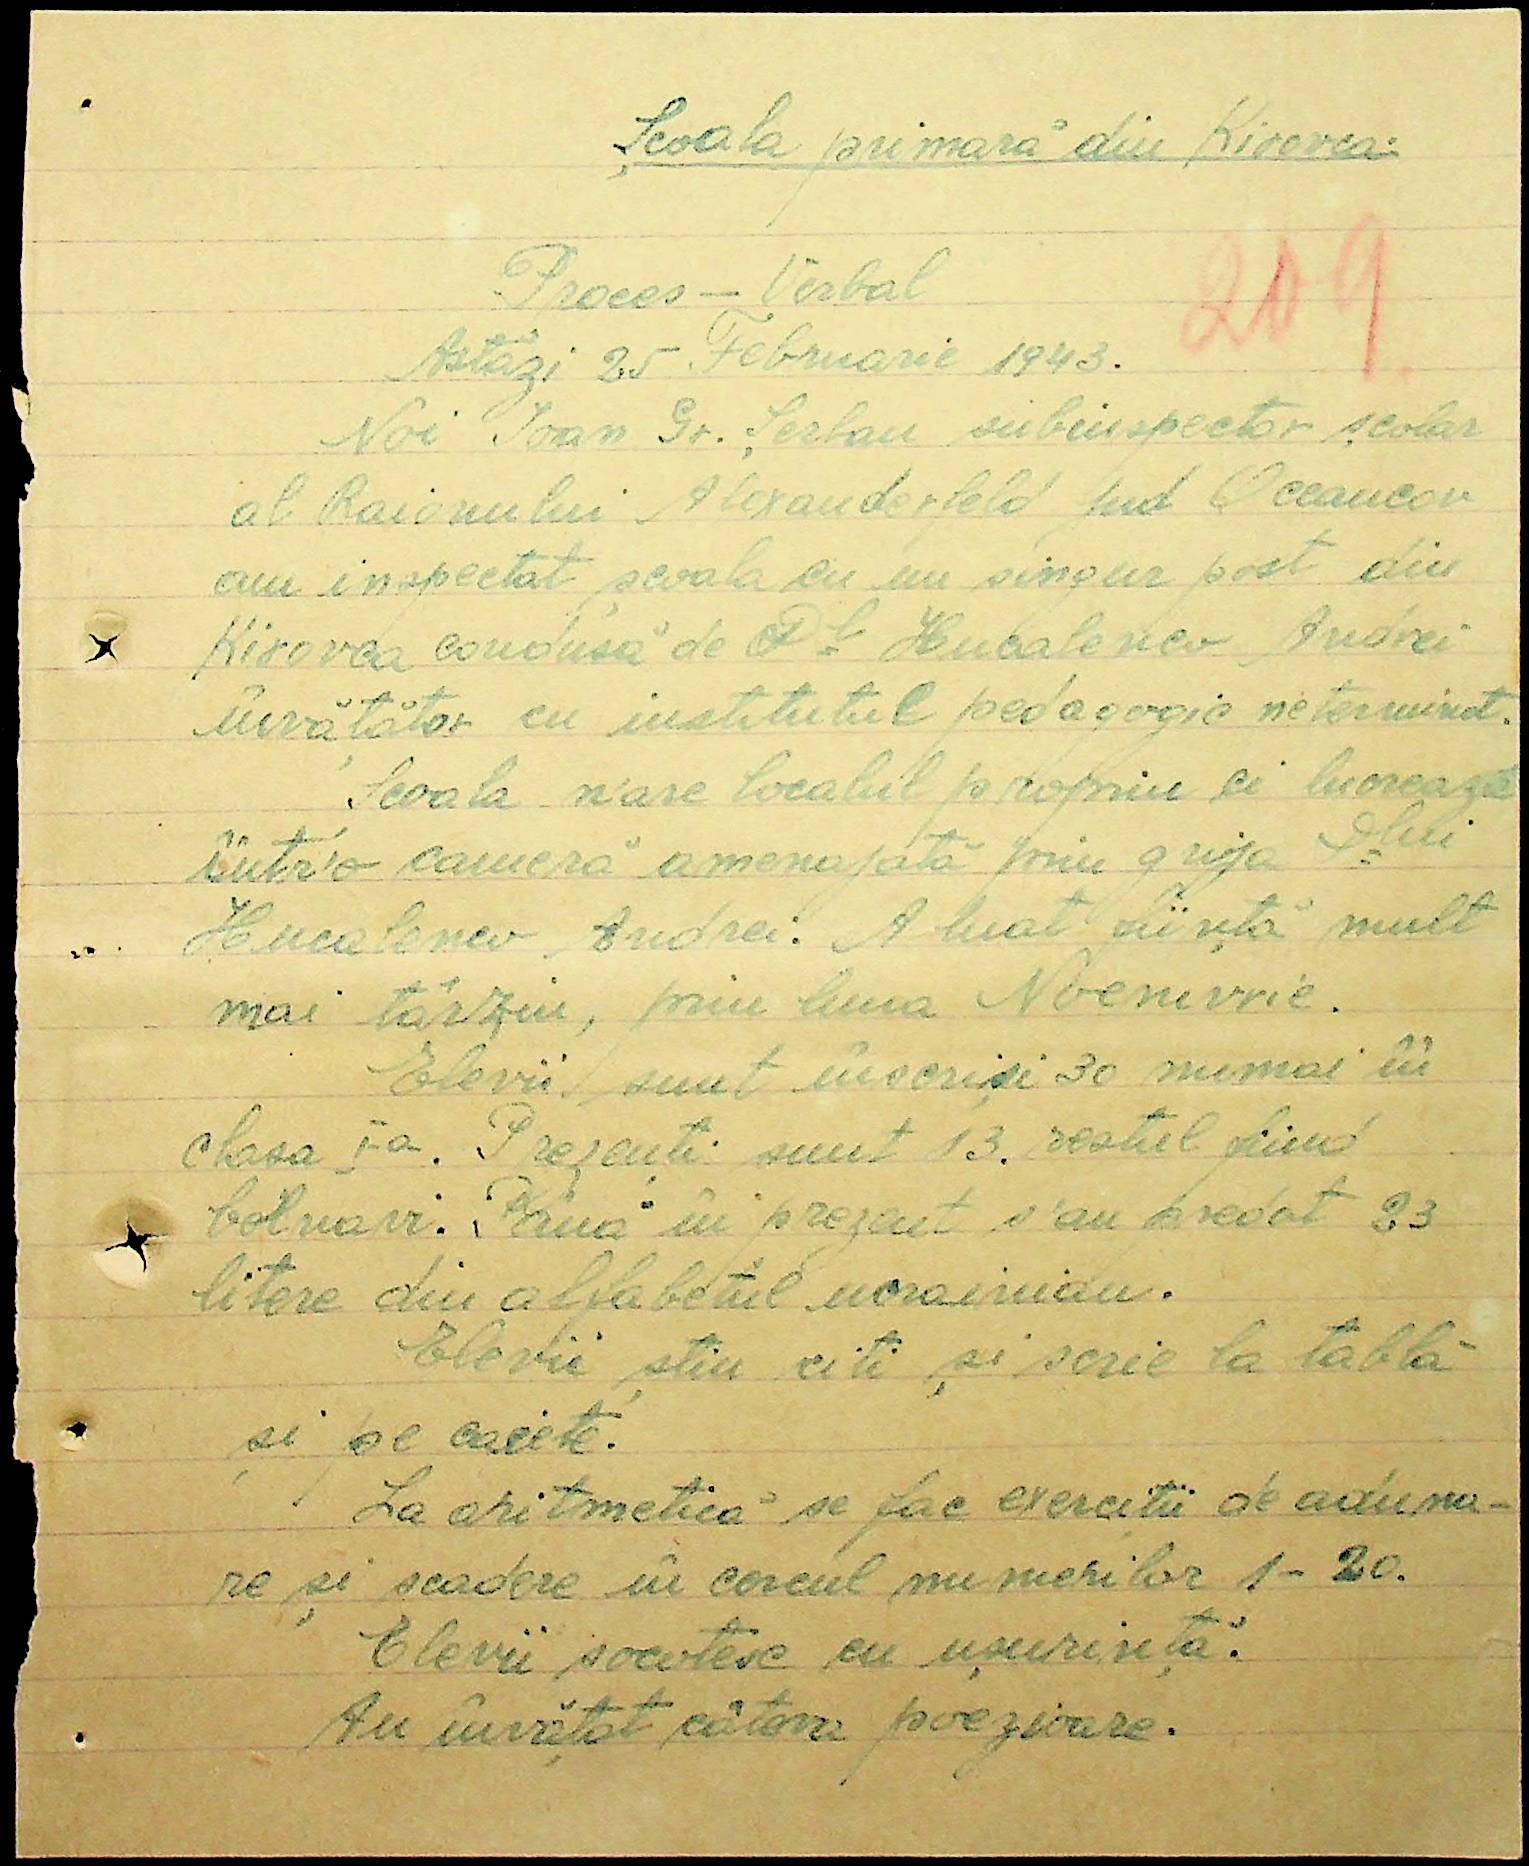 Școala primară din Kirovca.
209.
Proces – Verbal
Astăzi 25 Februarie 1943.
Noi Ioan Gr. Șerban subinspector școlar
al Raionului Alexanderfeld jud Oceacov
am inspectat școala cu un singur post din
Kirovca condusă de Dl Hucalenco Andrei
învățător cu institutul pedagogic neterminat.
Școala n'are localul propriu ci lucrează
într'o cameră amenajată prin grija Dlui
Hucalenco Andrei. A luat ființă mult
mai târziu, prin luna Noemvrie.
Elevii sunt înscriși 30 numai în
clasa I-a. Prezenți sunt 13. restul fiind
bolnavi. Până în prezent s'au predat 23
litere din alfabetul ucrainian.
Elevii știu citi și scrie la tablă
și pe caiete.
La aritmetică se fac exerciții de aduna-
re și scadere în cercul numerilor 1- 20.
Elevii socotesc cu ușurință.
Au învățat câteva poezioare.